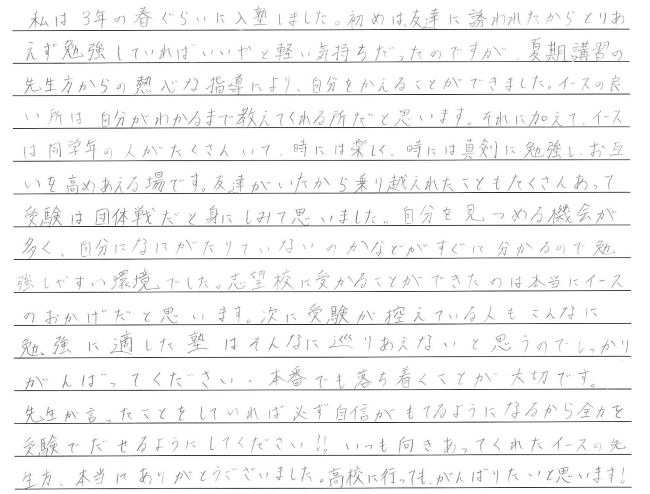 私は3年の春ぐらいに入塾しました。初めは友達に誘われたからとりあ
えず勉強していればいいやと軽い気持ちだったのですが、夏期講習の
先生方からの熱心な指導により、自分をかえることができました。イースの良
い所は自分がわかるまで教えてくれる所だと思います。それに加えて、イース
は同学年の人がたくさんいて、時には楽しく、時には真剣に勉強し、お互
いを高めあえる場です。友達がいたから乗り越えれたこともたくさんあって
受験は団体戦だと身にしみて思いました。自分を見つめる機会が
多く、自分になにがたりていないのかなどがすぐに分かるので勉
強しやすい環境でした。志望校に受かることができたのは本当にイース
のおかげだと思います。次に受験が控えている人もこんなに
勉強に適した塾はそんなに巡りあえないと思うのでしっかり
がんばってください。本番でも落ち着くことが大切です。
先生が言ったことをしていれば必ず自信がもてるようになるから全力を
受験でだせるようにしてください!!いつも向きあってくれたイースの先
生方、本当にありがとうございました。高校に行っても、がんばりたいと思います!